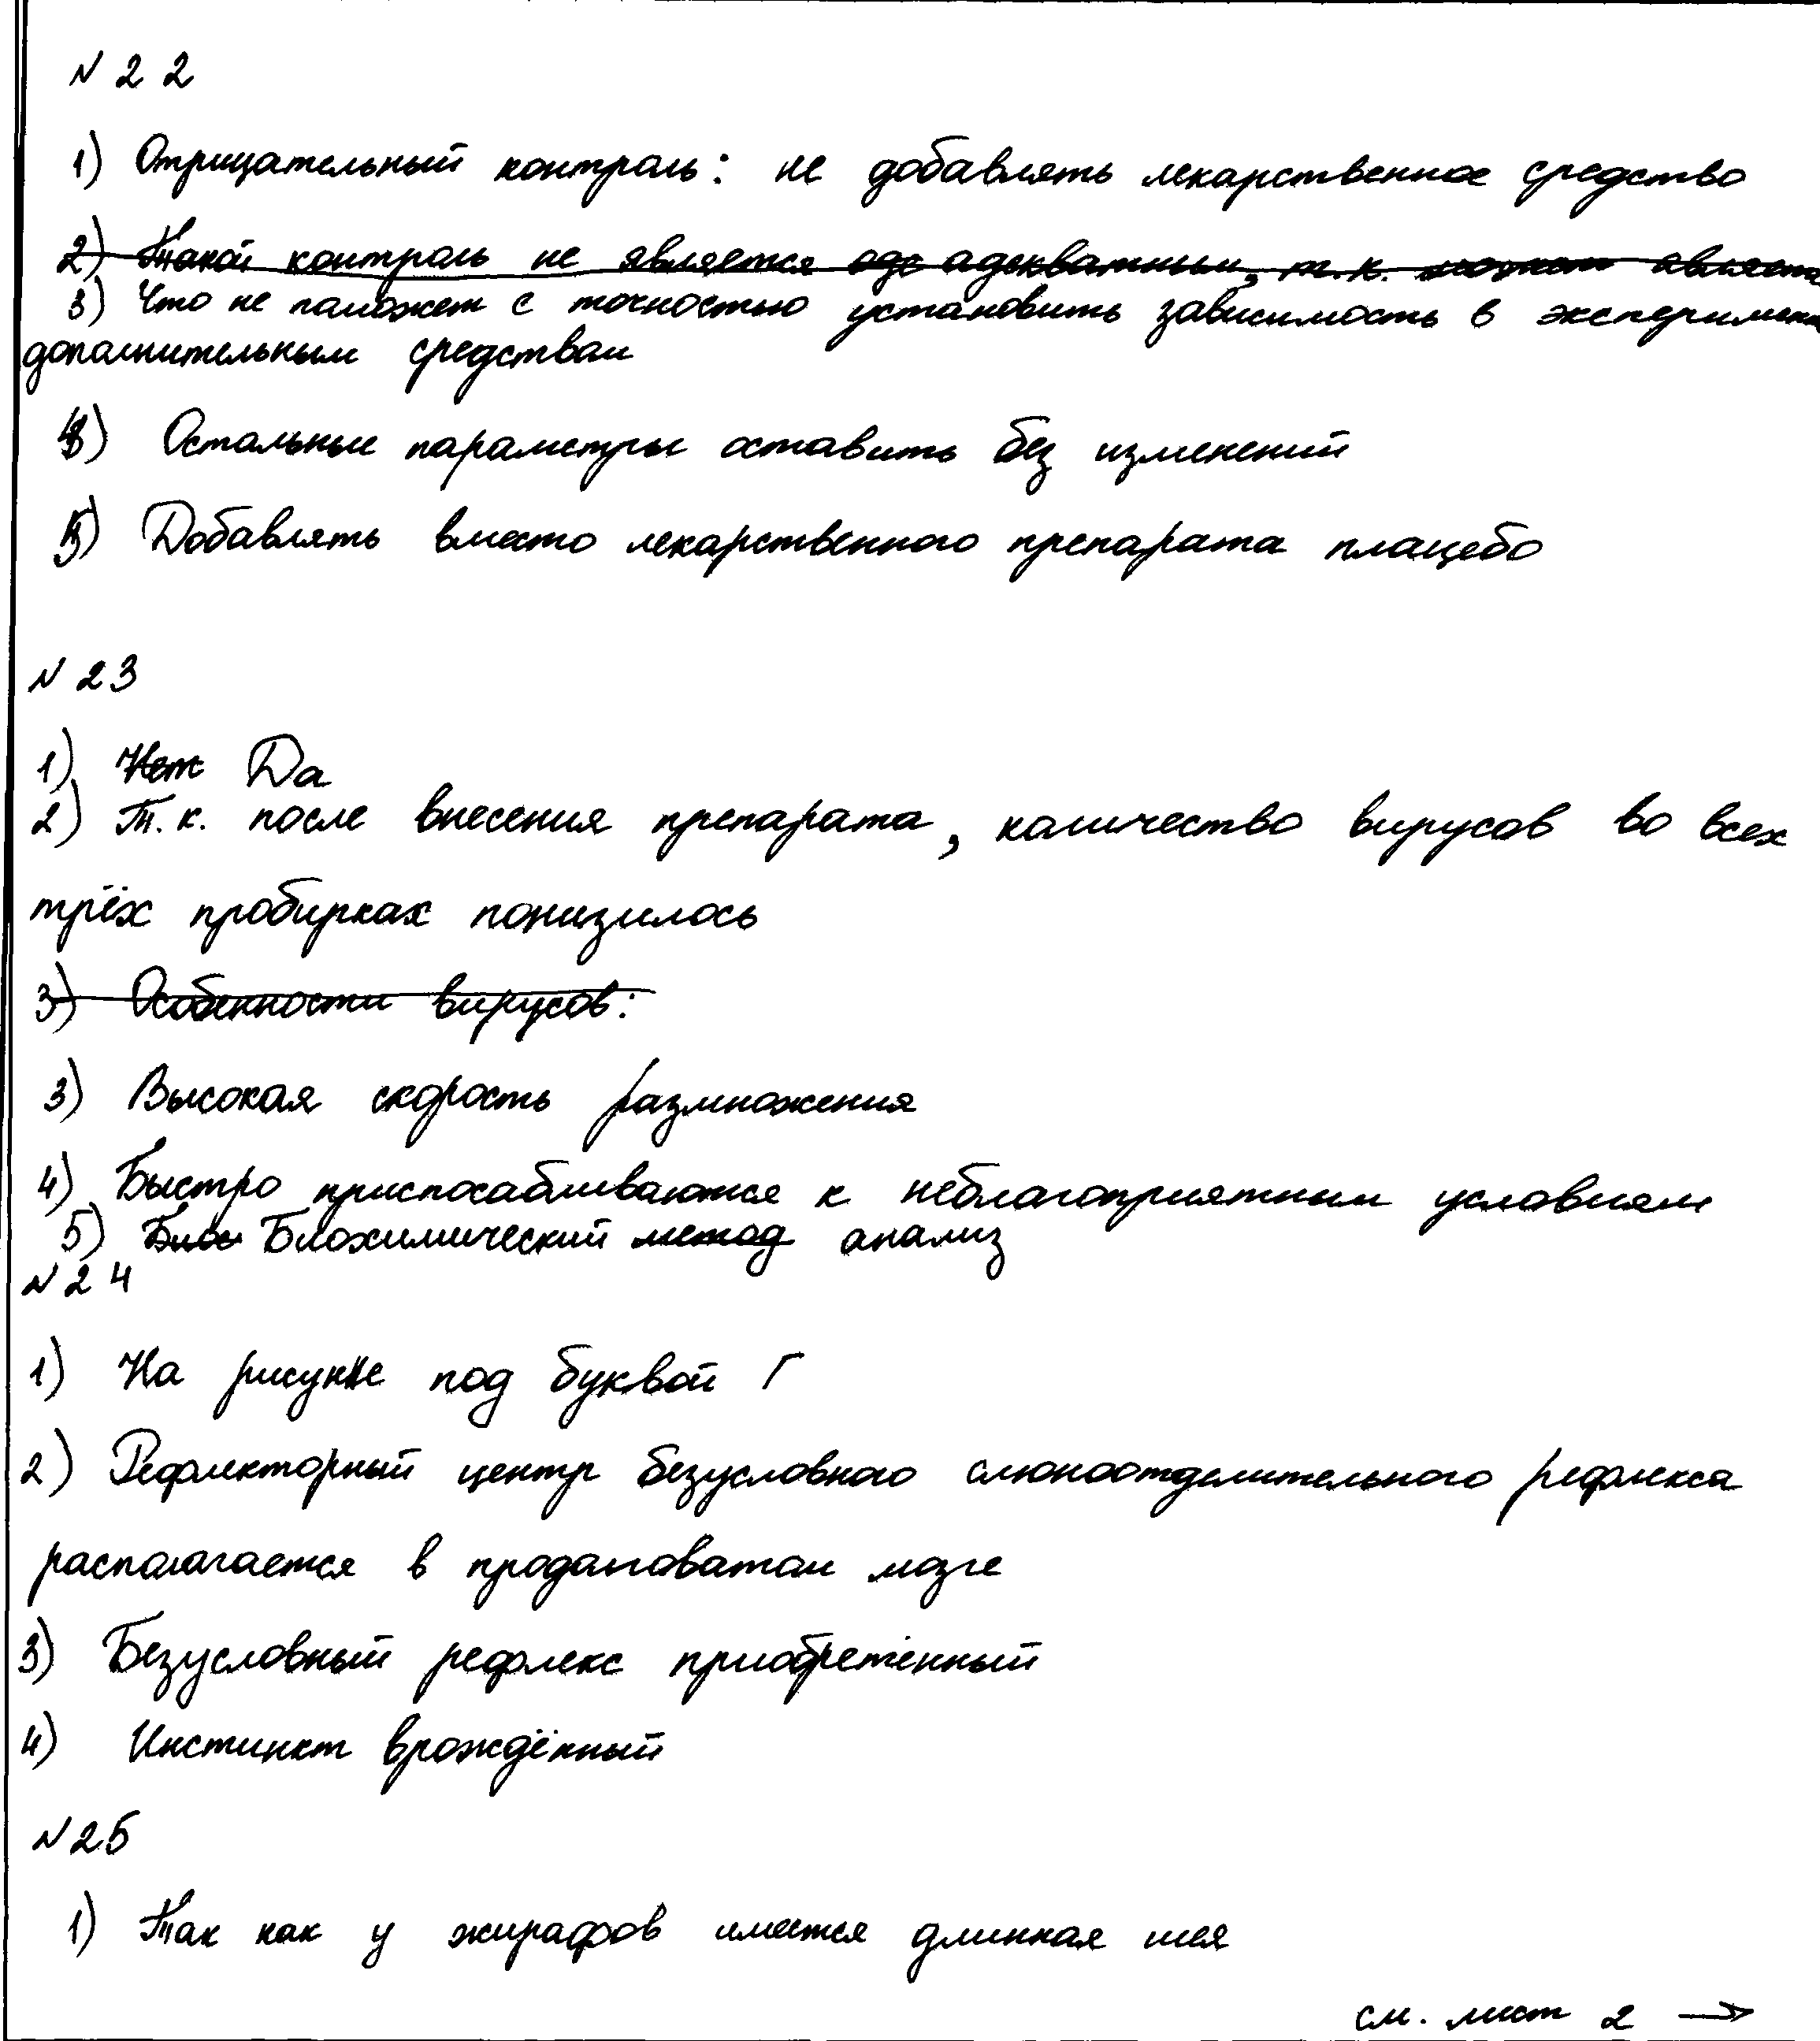 № 22
1) Отрицательный контроль: не добавлять лекарственное средство
2) Такой контроль не является аде адекватным, т.к. может являет
3) Что не поможет с точностью установить зависимость в эксперимен
дополнительным средствам
4) Остальные параметры оставить без изменений
5) Добавлять вместо лекарственного препарата плацебо
№ 23
1) Нет Да
2) Т.к. после внесения препарата, количество вирусов во всех
трёх пробирках понизилось
3) Особенности вирусов:
3) Высокая скорость размножения
4) Быстро приспосабливаются к неблагоприятным условиям
5) Биох Биохимический метод анализ
№ 24
1) На рисунке под буквой Г
2) Рефлекторный центр безусловного слюноотделительного рефлекса
располагается в продолговатом мозге
3) Безусловный рефлекс приобретённый
4) Инстинкт врождённый
№ 25
1) Так как у жирафов имеется длинная шея
см. лист 2 →